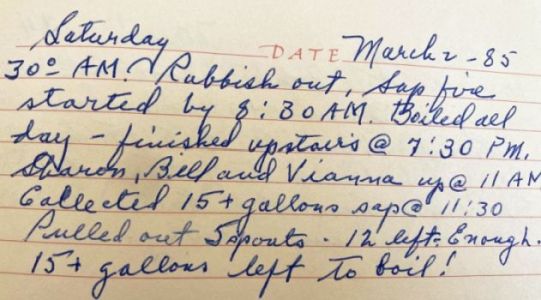 Saturday DATE March 2 - 85
30° AM. Rubbish out, Sap fire
started by 8:30 AM. Boiled all
day - finished upstairs @ 7:30 PM.
Sharon, Bill and Vianna up @ 11 AM
Collected 15+ gallons sap @ 11:30
Pulled out 5 spouts. 12 left = Enough.
15+ gallons left to boil!